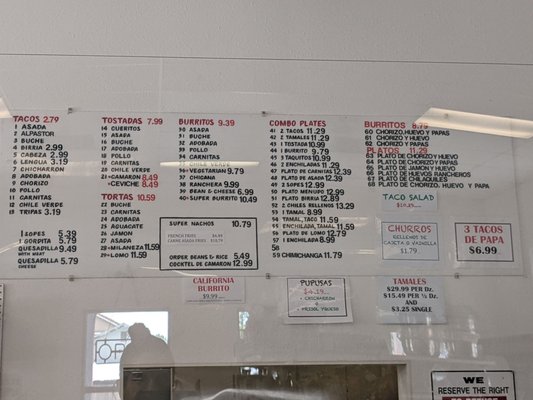 TACOS 2.79
1 ASADA
2 ALPASTOR
3 BUCHE
4 BIRRIA 2.99
5 CABEZA 2.99
6 LENGUA 3.19
7 CHICHARRON
8 ADOBADA
9 CHORIZO
10 POLLO
11 CARNITAS
12 CHILE VERDE
13 TRIPAS 3.19
1 SOPES 5.39
1 GORDITA 5.79
QUESADILLA 9.49
WITH MEAT
QUESADILLA 5.79
CHEESE
TOSTADAS 7.99
14 CUERITOS
15 ASADA
16 BUCHE
17 ADOBADA
18 POLLO
19 CARNITAS
20 CHILE VERDE
21 CAMARON 8.49
CEVICHE 8.49
TORTAS 10.59
22 BUCHE
23 CARNITAS
24 ADOBADA
25 AGUACATE
26 JAMON
27 ASADA
28 MILANEZA 11.59
29 LOMO 11.59
BURRITOS 9.39
30 ASADA
31 BUCHE
32 ADOBADA
33 POLLO
34 CARNITAS
35 CHILE VERDE
36 VEGETARIAN 9.79
37 LENGUA
38 RANCHERA 9.99
39 BEAN & CHEESE 6.99
40 SUPER BURRITO 10.49
SUPER NACHOS 10.79
FRENCH FRIES
CARNE ASADA FRIES
ORDER BEANS & RICE 5.49
COCKTEL DE CAMARON 12.99
COMBO PLATES
41 2 TACOS 11.29
42 2 TAMALES 11.29
43 1 TOSTADA 10.99
44 1 BURRITO 9.79
45 3 TAQUITOS 10.99
46 2 ENCHILADAS 11.29
47 PLATO CARNITAS 12.39
48 PLATO DE ASADA 12.39
49 2 SOPES 12.99
50 PLATO MENUDO 12.99
51 PLATO BIRRIA 12.89
52 2 CHILES RELLENOS 13.29
53 1 TAMAL 8.99
54 TAMAL, TACO 11.59
55 ENCHILADA, TAMAL 11.59
56 PLATO DE LOMO 12.79
57 1 ENCHILADA 8.99
58
59 CHIMICHANGA 11.79
BURRITOS 8.79
60 CHORIZO, HUEVO Y PAPAS
61 CHORIZO Y HUEVO
62 CHORIZO Y PAPAS
PLATOS 11.29
63 PLATO DE CHORIZO Y HUEVO
64 PLATO DE CHORIZO Y PAPAS
65 PLATO DE JAMON Y HUEVO
66 PLATO DE HUEVOS RANCHEROS
67 PLATO DE CHILAQUILES
68 PLATO DE CHORIZO, HUEVO Y PAPAS
TACO SALAD
CHURROS
RELLENOS DE
CAJETA O VAINILLA
$1.79
3 TACOS
DE PAPA
$6.99
CALIFORNIA
BURRITO
$9.99
PUPUSAS
$4.19
CHICHARRON
FRIJOL Y QUESO
TAMALES
$29.99 PER Dz.
$15.49 PER ½ Dz.
$3.25 SINGLE
WE
RESERVE THE RIGHT
TO REFUSE